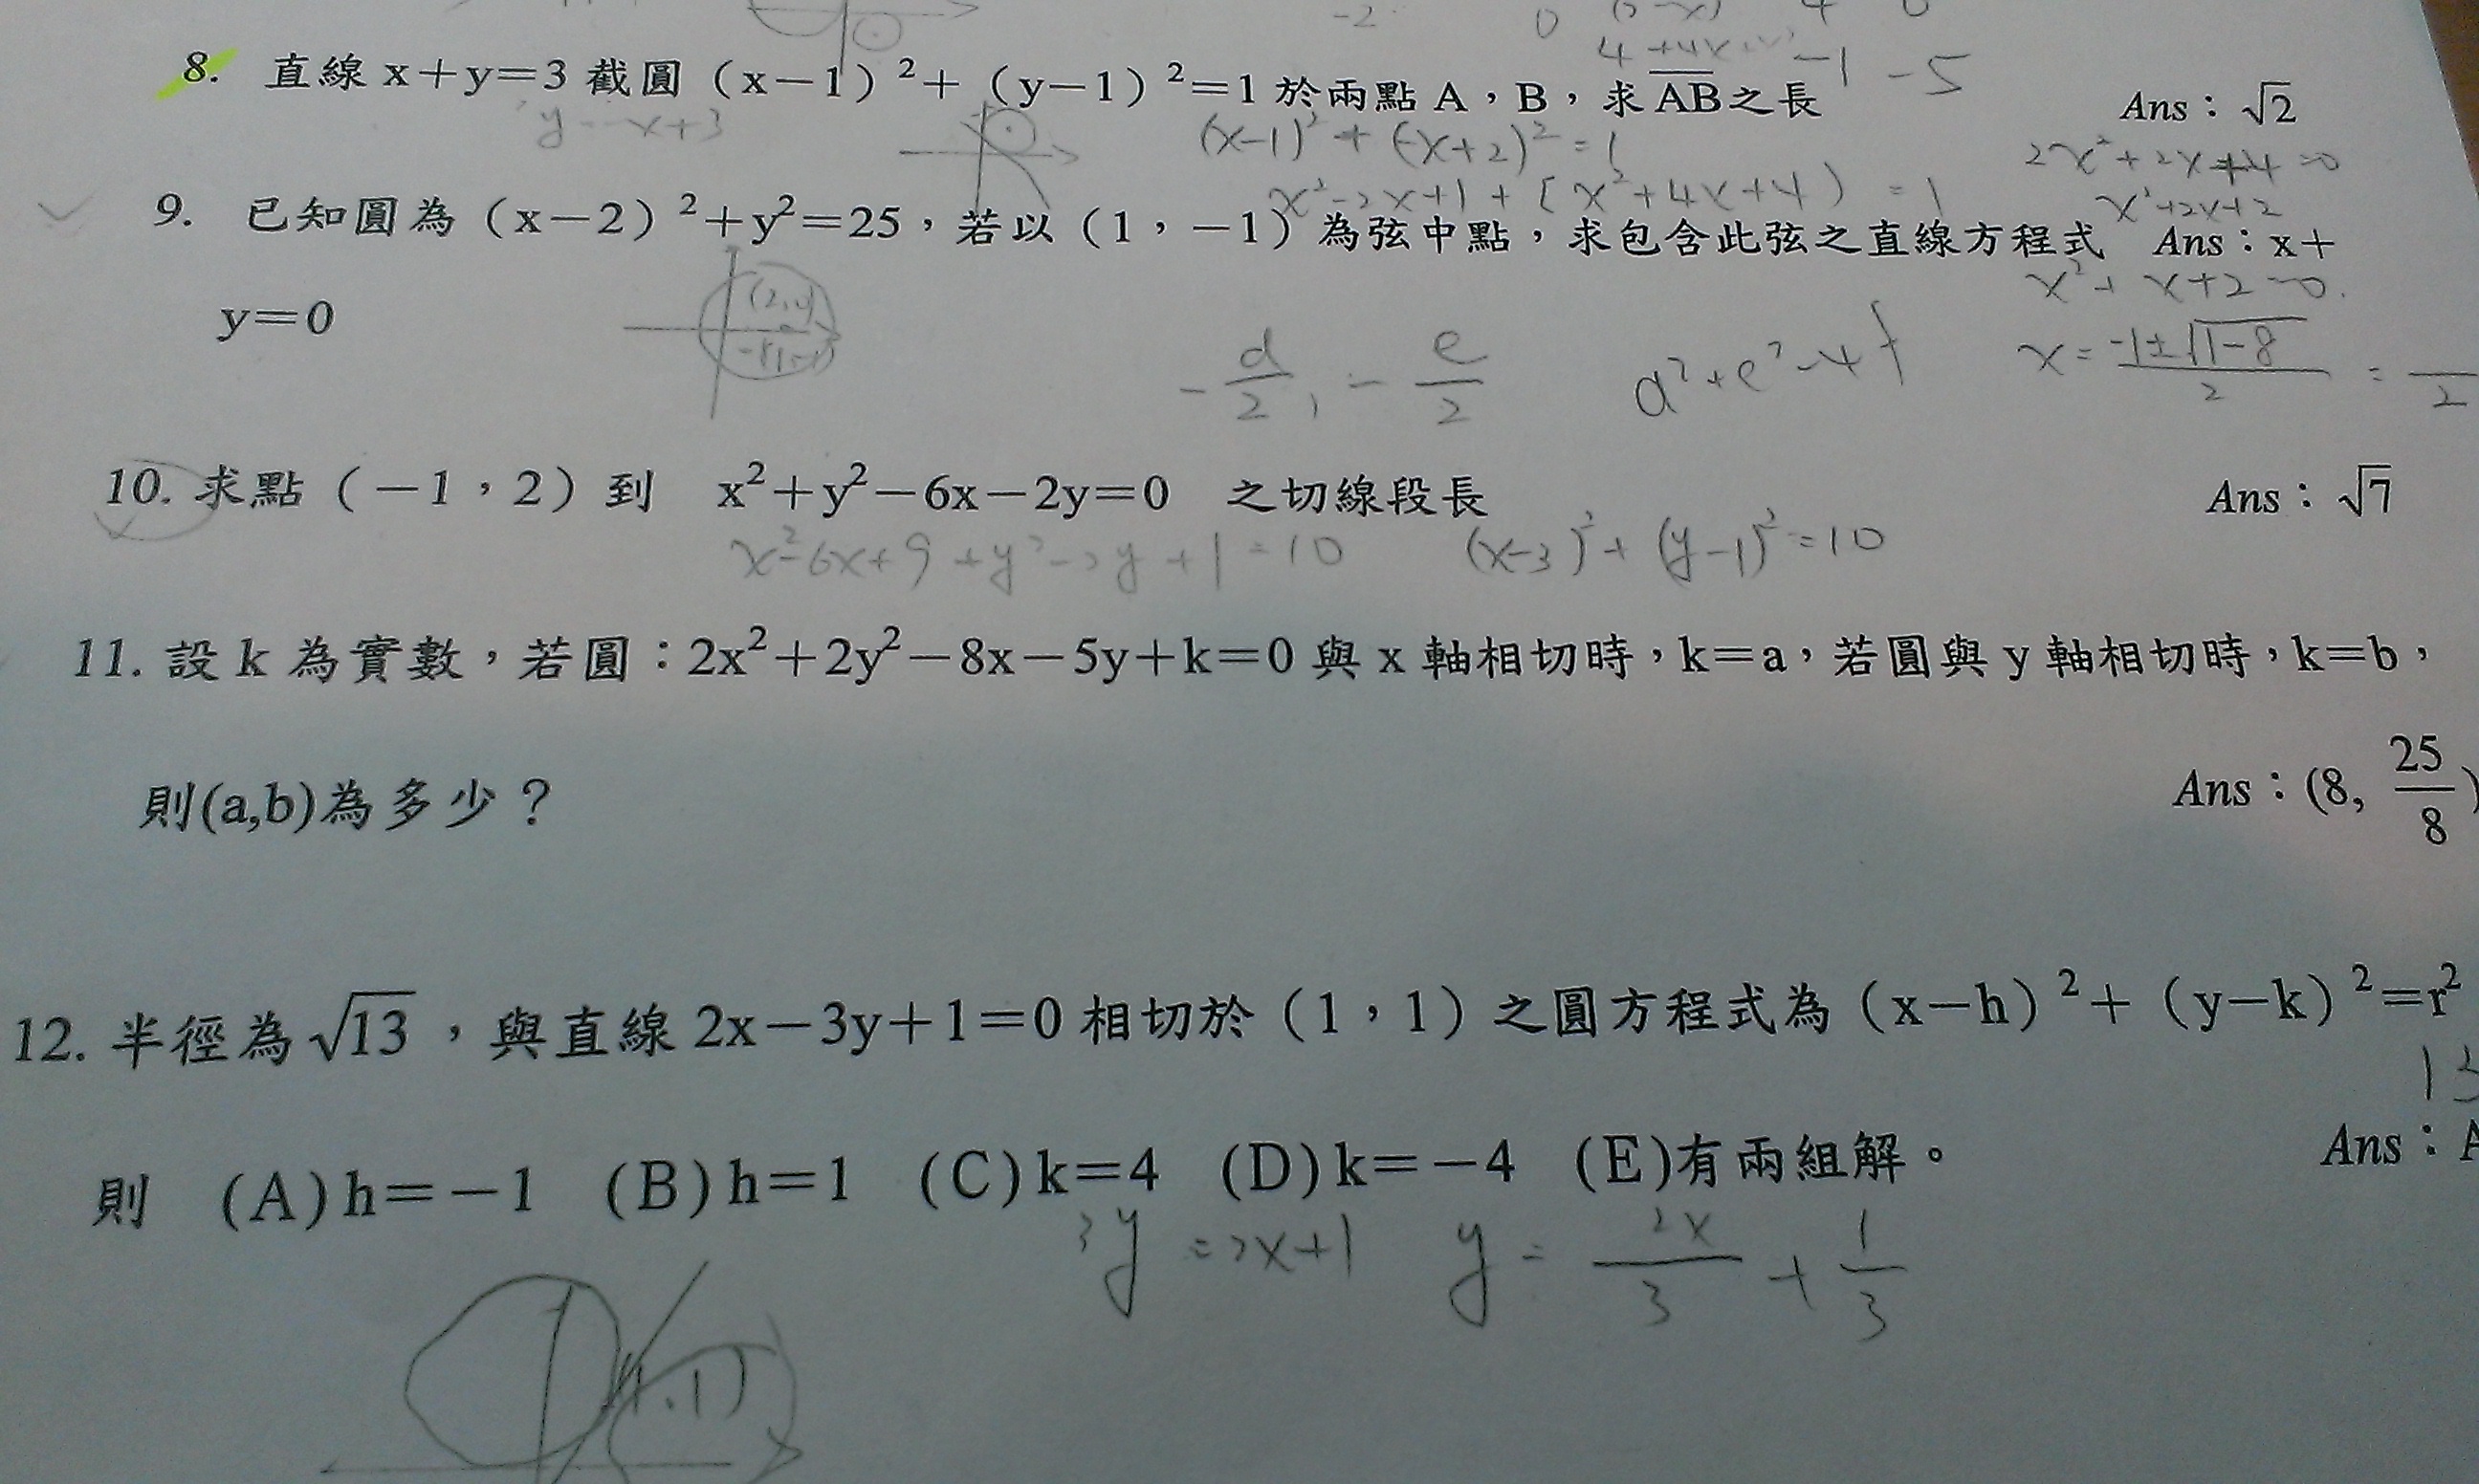 -2 0
4 +4x -1 -5
8. 直線 x+y=3 截圓（x-1）²+（y-1）²=1 於兩點 A，B，求 AB 之長 Ans：√2
y=-x+3 (x-1)²+(-x+2)²=1 2x²+2x+4=0
x²-2x+1+(x²+4x+4)=1 x²+2x+2
9. 已知圓為（x-2）²+y²=25，若以（1，-1）為弦中點，求包含此弦之直線方程式 Ans：x+
y=0 (2,0) x²+x+2=0.
-d/2, -e/2 d²+e²-4f x=(-1±√(1-8))/2 = /2
10. 求點（-1，2）到 x²+y²-6x-2y=0 之切線段長 Ans：√7
x²-6x+9+y²-2y+1=10 (x-3)²+(y-1)²=10
11. 設 k 為實數，若圓：2x²+2y²-8x-5y+k=0 與 x 軸相切時，k=a，若圓與 y 軸相切時，k=b，
則(a,b)為多少？ Ans：(8, 25/8)
12. 半徑為√13，與直線 2x-3y+1=0 相切於（1，1）之圓方程式為（x-h）²+（y-k）²=r²
13
則 (A)h=-1 (B)h=1 (C)k=4 (D)k=-4 (E)有兩組解。 Ans：A
3y=2x+1 y=2x/3+1/3
(1,1)